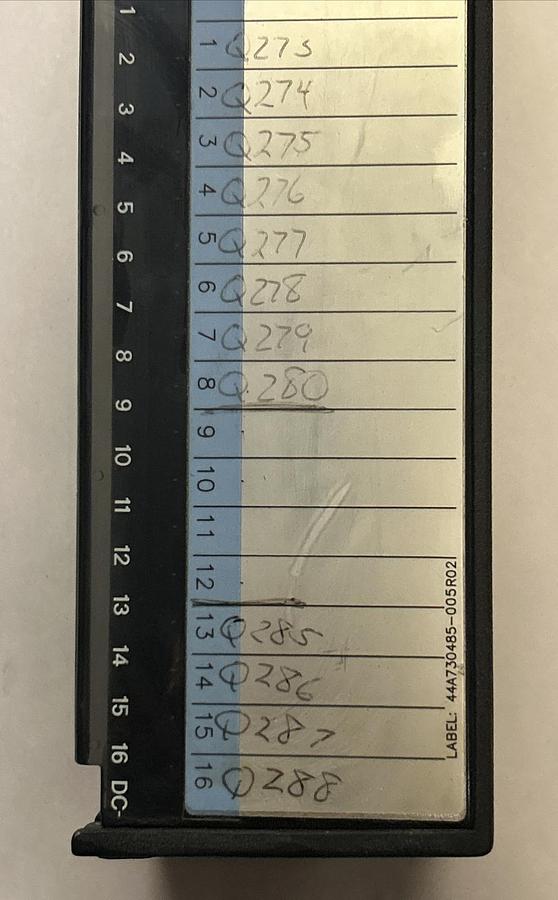 1
2
3
4
5
6
7
8
9
10
11
12
13
14
15
16
DC-
1 Q273
2 Q274
3 Q275
4 Q276
5 Q277
6 Q278
7 Q279
8 Q280
9
10
11
12
13 Q285
14 Q286
15 Q287
16 Q288
LABEL: 44A730485-005R02